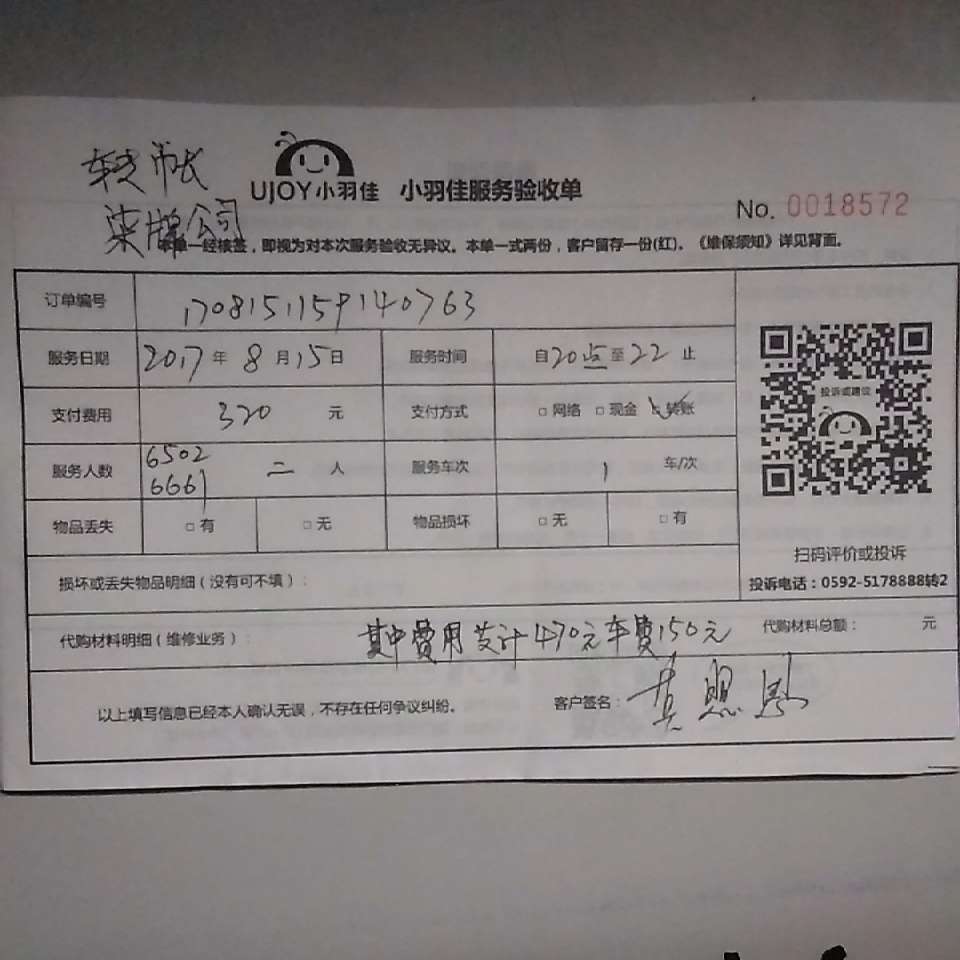 转帐
柒牌公司
UJOY小羽佳 小羽佳服务验收单
No. 0018572
本单一经核签，即视为对本次服务验收无异议。本单一式两份，客户留存一份(红)。《维保须知》详见背面。
订单编号 1708151159140763
服务日期 2017年8月15日 服务时间 自20点至22止
支付费用 320 元 支付方式 □网络 □现金 ☑转账
投诉或建议
服务人数 6502 6661 二 人 服务车次 1 车/次
物品丢失 □有 □无 物品损坏 □无 □有
扫码评价或投诉
投诉电话：0592-5178888转2
损坏或丢失物品明细（没有可不填）：
代购材料明细（维修业务）： 其中费用共计470元车费150元 代购材料总额： 元
以上填写信息已经本人确认无误，不存在任何争议纠纷。 客户签名：